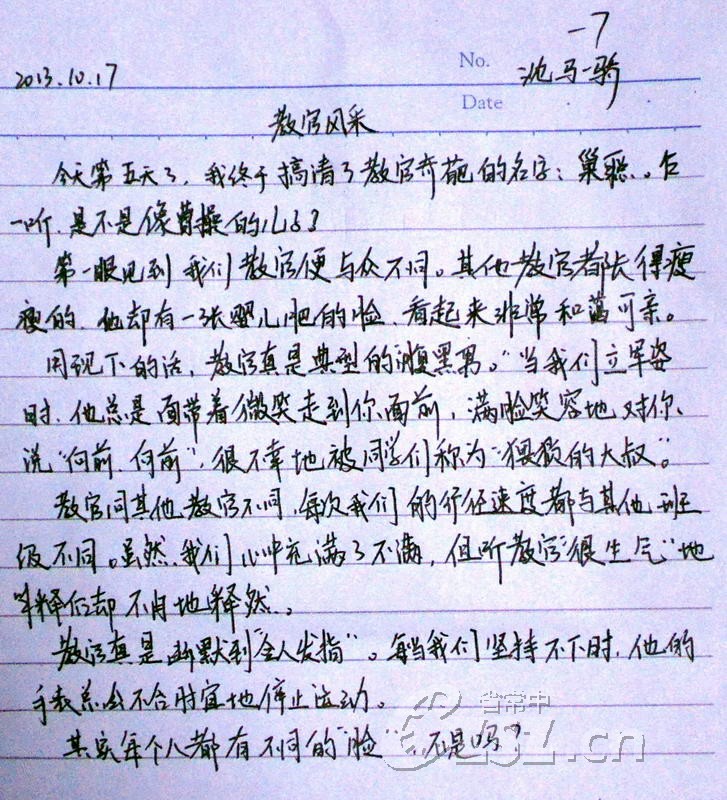 -7
No.
沈马一骑
2013.10.17
Date
教官风采
今天第五天了，我终于搞清了教官奇葩的名字：巢聪。乍
一听，是不是像曹操的儿子？
第一眼见到我们教官便与众不同。其他教官都长得瘦
瘦的，他却有一张婴儿肥的脸，看起来非常和蔼可亲。
用现下的话，教官真是典型的“腹黑男。”当我们立军姿
时，他总是面带着微笑走到你面前，满脸笑容地对你
说“向前，向前”，很不幸地被同学们称为“猥琐的大叔”。
教官同其他教官不同，每次我们的行径速度都与其他班
级不同。虽然，我们心中充满了不满，但听教官“很生气”地
解释后却不由地释然。
教官真是幽默到“令人发指”。每当我们坚持不下时，他的
手表总会不合时宜地停止运动。
其实每个人都有不同的“脸”，不是吗？
省常中
CZL.cn